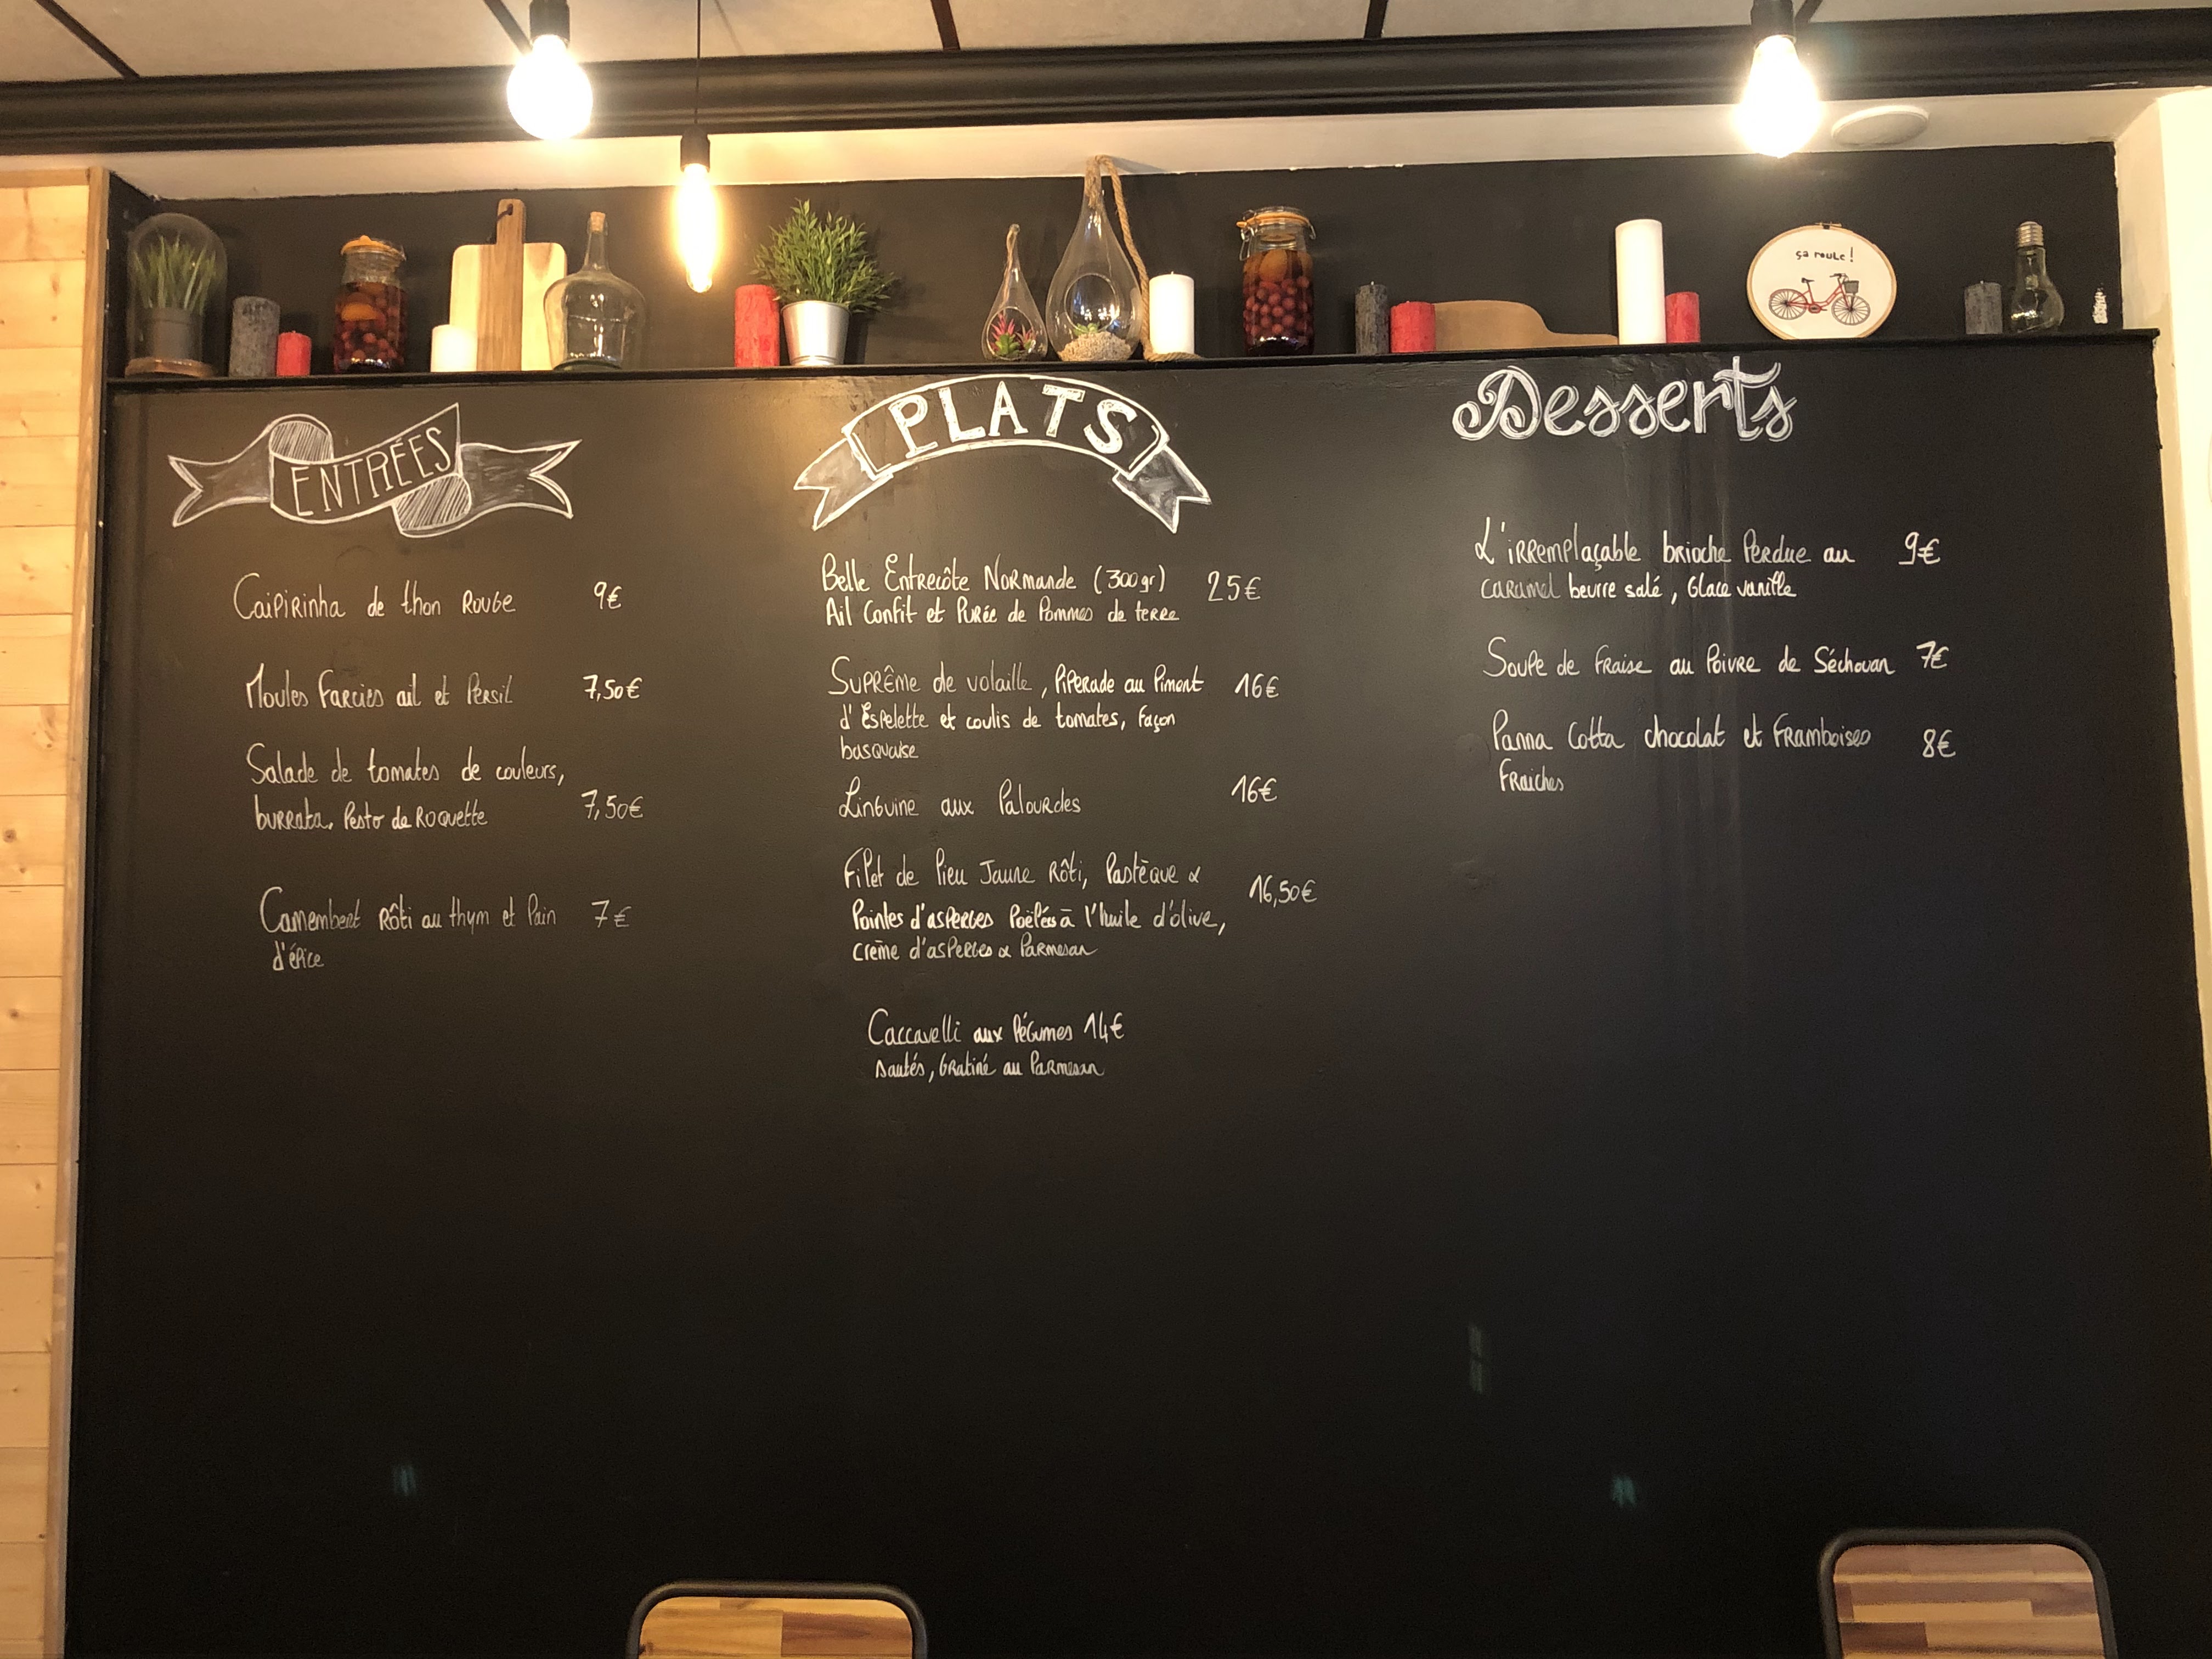 ça roule !
ENTRÉES
Caipirinha de thon Rouge 9€
Moules Farcies ail et Persil 7,50€
Salade de tomates de couleurs,
burrata, Pesto de Roquette 7,50€
Camembert Rôti au thym et Pain 7€
d'épice
PLATS
Belle Entrecôte Normande (300gr) 25€
Ail Confit et Purée de Pommes de terre
Suprême de volaille, Piperade au Piment 16€
d'Espelette et coulis de tomates, Façon
basquaise
Linguine aux Palourdes 16€
Filet de Lieu Jaune Rôti, Pastèque &
16,50€
Pointes d'asperges Poêlées à l'huile d'olive,
crème d'asperges & Parmesan
Caccavelli aux légumes 14€
sautés, Gratiné au Parmesan
Desserts
L'irremplaçable brioche Perdue au 9€
caramel beurre salé, Glace vanille
Soupe de Fraise au Poivre de Séchouan 7€
Panna Cotta chocolat et Framboises 8€
Fraiches